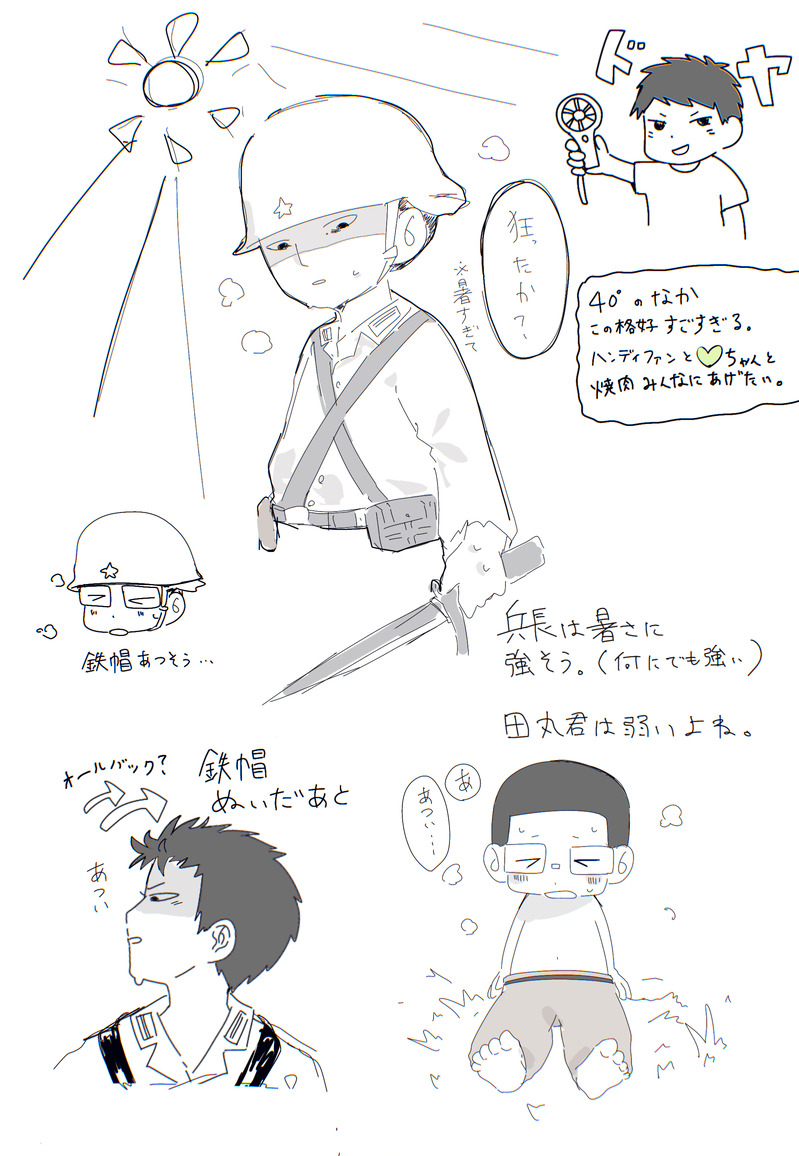 ドヤ
狂ったか?
※暑すぎて
40°のなか
この格好すごすぎる。
ハンディファンと♡ちゃんと
焼肉みんなにあげたい。
鉄帽あつそう…
兵長は暑さに
強そう。(何にでも強い)
田丸君は弱いよね。
オールバック?
鉄帽
ぬいだあと
あつい
あ
あつい……